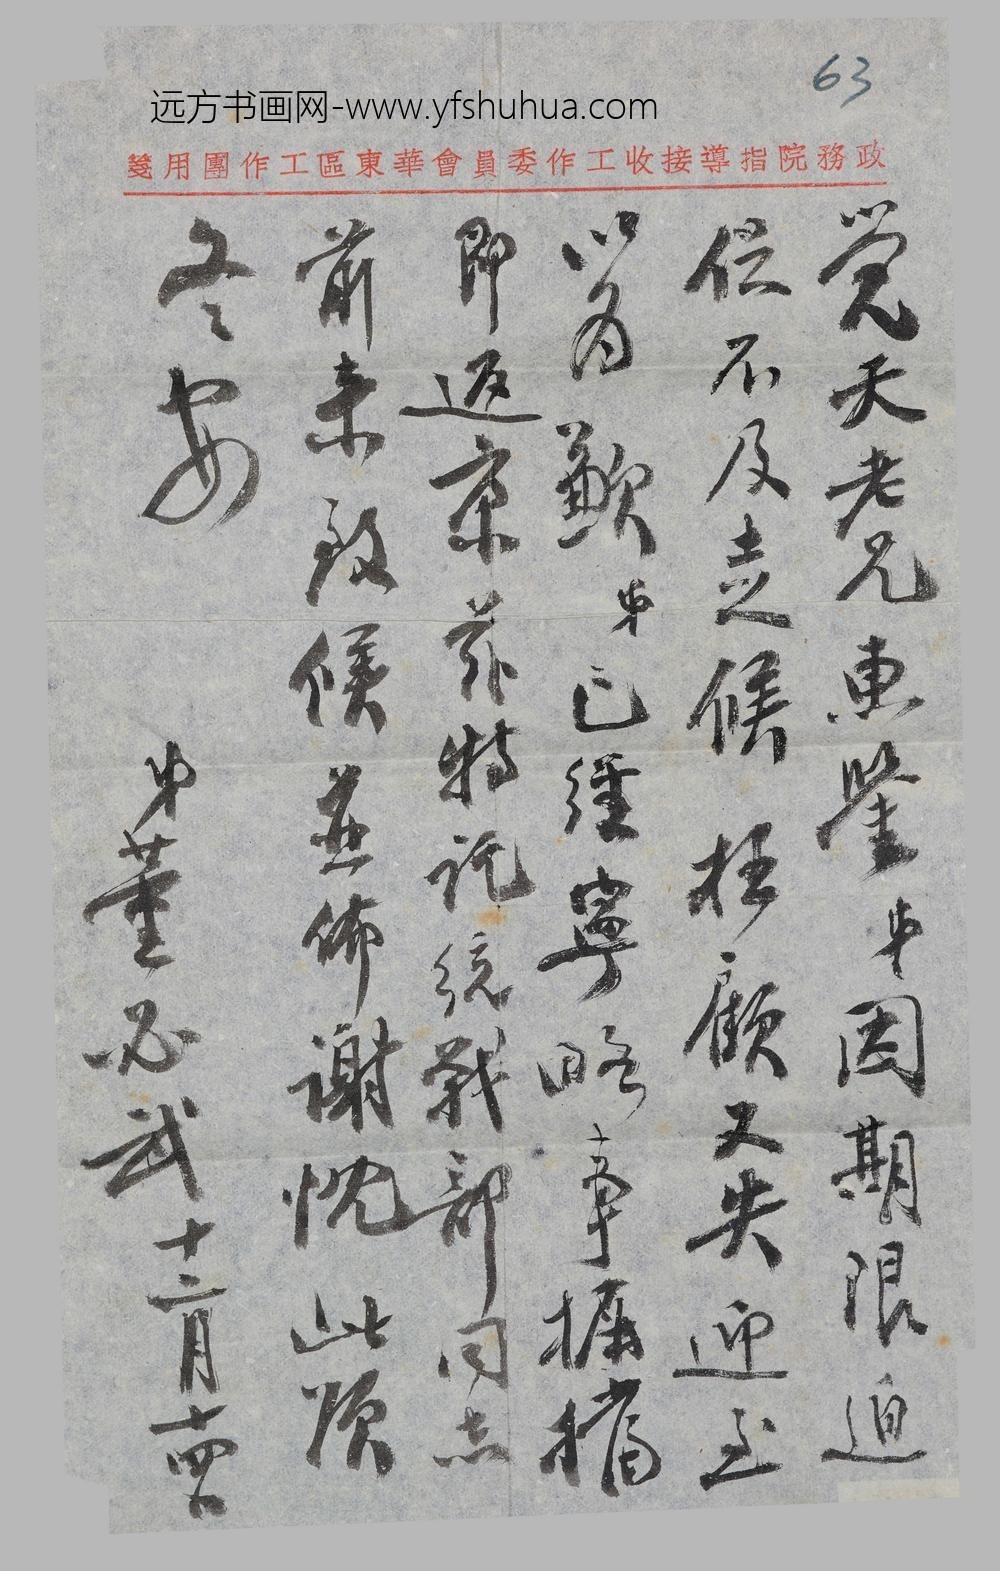 63
远方书画网-www.yfshuhua.com
政務院指導接收工作委員會華東區工作團用箋
覺天老兄惠鑒弟因期限迫
促不及走候枉顧又失迎至
以為歉弟已經寧略事摒擋
即返京茲特託統戰部同志
前來致候並佈謝忱此頌
冬安
弟董必武十二月十四日